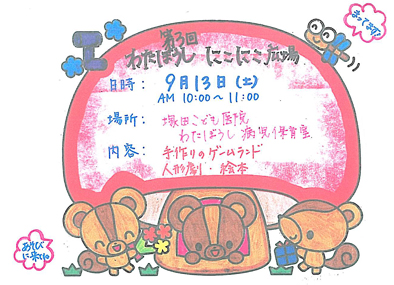 まってます!
第3回
わたぼうし にこにこ広場
日時: 9月13日(土)
AM 10:00〜11:00
場所: 塚田こども医院
わたぼうし病児保育室
内容: 手作りのゲームランド
人形劇・絵本
あそび
に来てね。